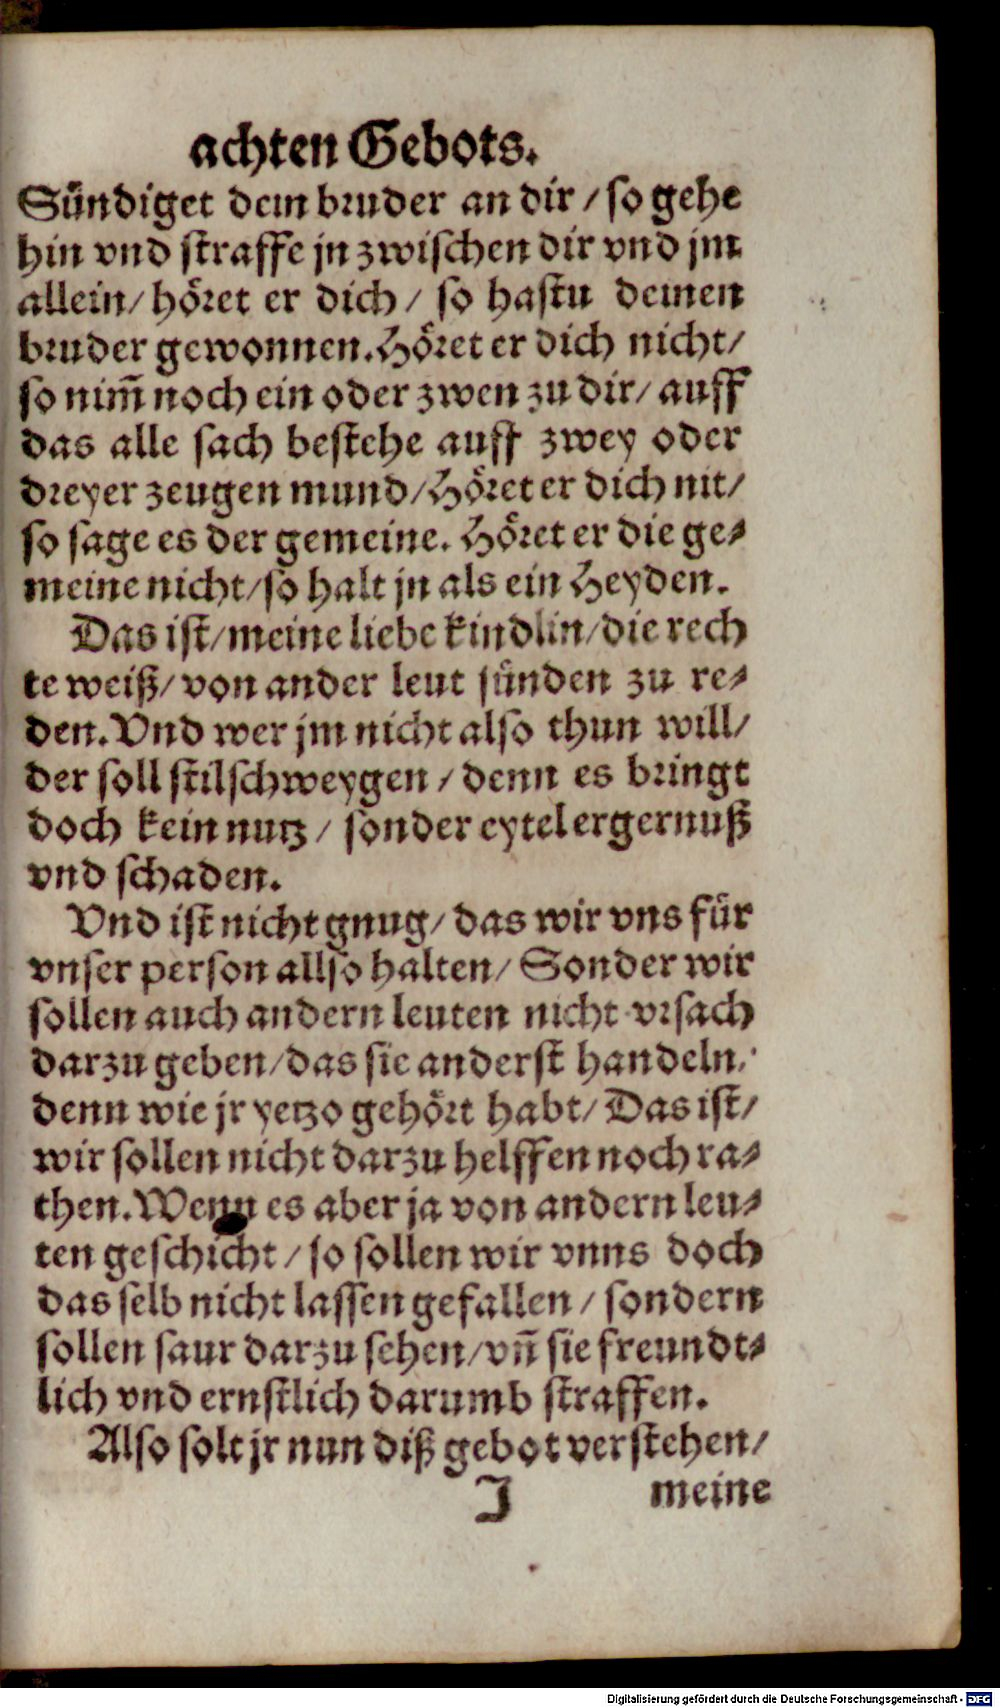 achten Gebots.
Sündiget dein bruder an dir / so gehe
hin vnd straffe jn zwischen dir vnd jm
allein / höret er dich / so hastu deinen
bruder gewonnen. Höret er dich nicht /
so nim̃ noch ein oder zwen zu dir / auff
das alle sach bestehe auff zwey oder
dreyer zeugen mund / Höret er dich nit /
so sage es der gemeine. Höret er die ge-
meine nicht / so halt jn als ein Heyden.
Das ist / meine liebe kindlin / die rech
te weiß / von ander leut sünden zu re-
den. Vnd wer jm nicht also thun will /
der soll stilschweygen / denn es bringt
doch kein nutz / sonder eytel ergernuß
vnd schaden.
Vnd ist nicht gnug / das wir vns für
vnser person allso halten / Sonder wir
sollen auch andern leuten nicht vrsach
darzu geben / das sie anderst handeln /
denn wie jr yetzo gehört habt / Das ist /
wir sollen nicht darzu helffen noch ra-
then. Wenn es aber ja von andern leu-
ten geschicht / so sollen wir vnns doch
das selb nicht lassen gefallen / sondern
sollen saur darzu sehen / vñ sie freundt-
lich vnd ernstlich darumb straffen.
Also solt jr nun diß gebot verstehen /
J meine
Digitalisierung gefördert durch die Deutsche Forschungsgemeinschaft - DFG